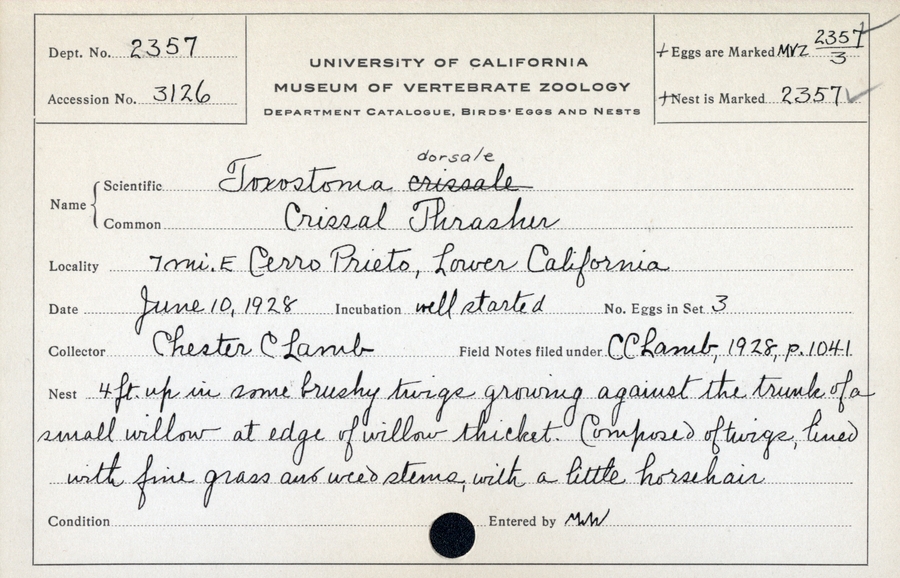 Dept. No. 2357
Accession No. 3126
UNIVERSITY OF CALIFORNIA
MUSEUM OF VERTEBRATE ZOOLOGY
DEPARTMENT CATALOGUE, BIRDS' EGGS AND NESTS
+Eggs are Marked MVZ 2357/3
+Nest is Marked 2357
dorsale
Name Scientific Toxostoma crissale
Common Crissal Thrasher
Locality 7 mi. E Cerro Prieto, Lower California
Date June 10, 1928 Incubation well started No. Eggs in Set 3
Collector Chester C Lamb Field Notes filed under CCLamb, 1928, p. 1041.
Nest 4 ft. up in some brushy twigs growing against the trunk of a
small willow at edge of willow thicket. Composed of twigs, lined
with fine grass and weed stems, with a little horsehair
Condition Entered by MWW